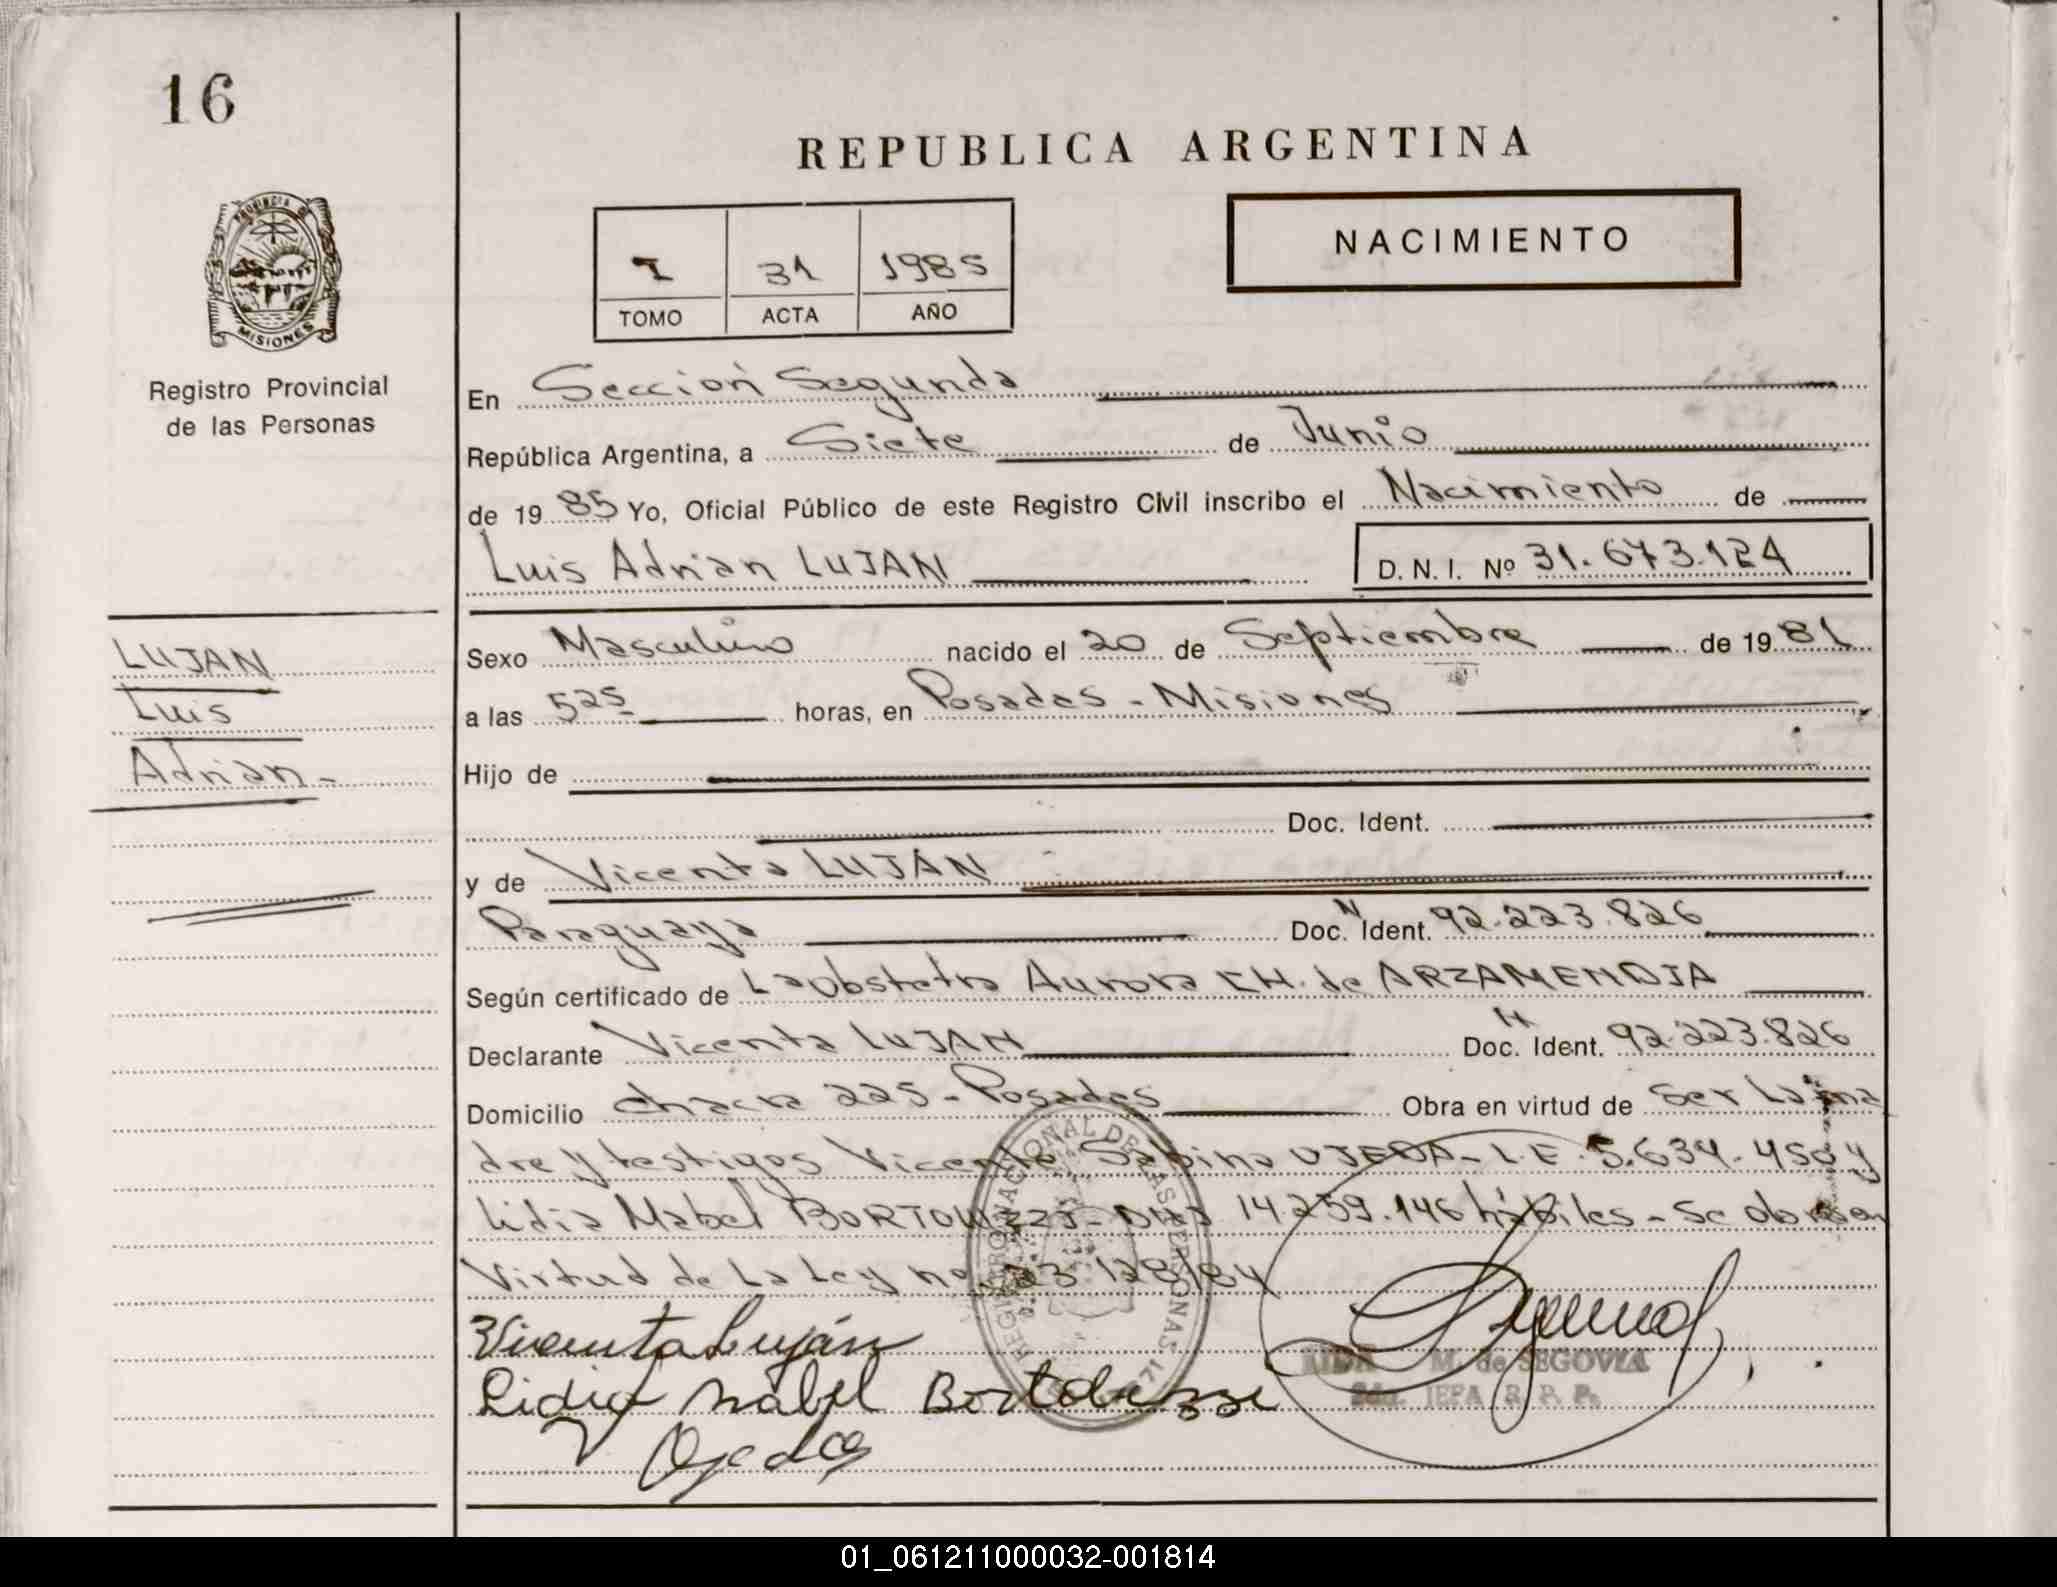 16
REPUBLICA ARGENTINA
PROVINCIA DE
MISIONES
Registro Provincial
de las Personas
NACIMIENTO
I 31 1985
TOMO ACTA AÑO
En Sección Segunda
República Argentina, a Siete de Junio
de 19 85 Yo, Oficial Público de este Registro Civil inscribo el Nacimiento de
Luis Adrian LUJAN D. N. I. Nº 31.673.124
LUJAN
Luis
Adrian-
Sexo Masculino nacido el 20 de Septiembre de 19 81
a las 525 horas, en Posadas - Misiones
Hijo de
Doc. Ident.
y de Vicenta LUJÁN
Paraguaya Doc. N Ident. 92.223.826
Según certificado de La obstetra Aurora CH. de ARZAMENDIA
Declarante Vicenta LUJAN Doc. N Ident. 92.223.826
Domicilio chacra 225 - Posadas Obra en virtud de Ser La ma
dre y testigos Vicente Sabino OJEDA - L.E. 5.634.450 y
Lidia Mabel BORTOLUZZI - DNI 14.259.146 hábiles - Se obra en
Virtud de La Ley nº 23.128/84
Vicenta Luján
Lidia Mabel Bortoluzzi
V Ojeda
REGISTRO PROVINCIAL DE LAS PERSONAS
AIDA M. de SEGOVIA
2da. JEFA R. P. P.
01_061211000032-001814